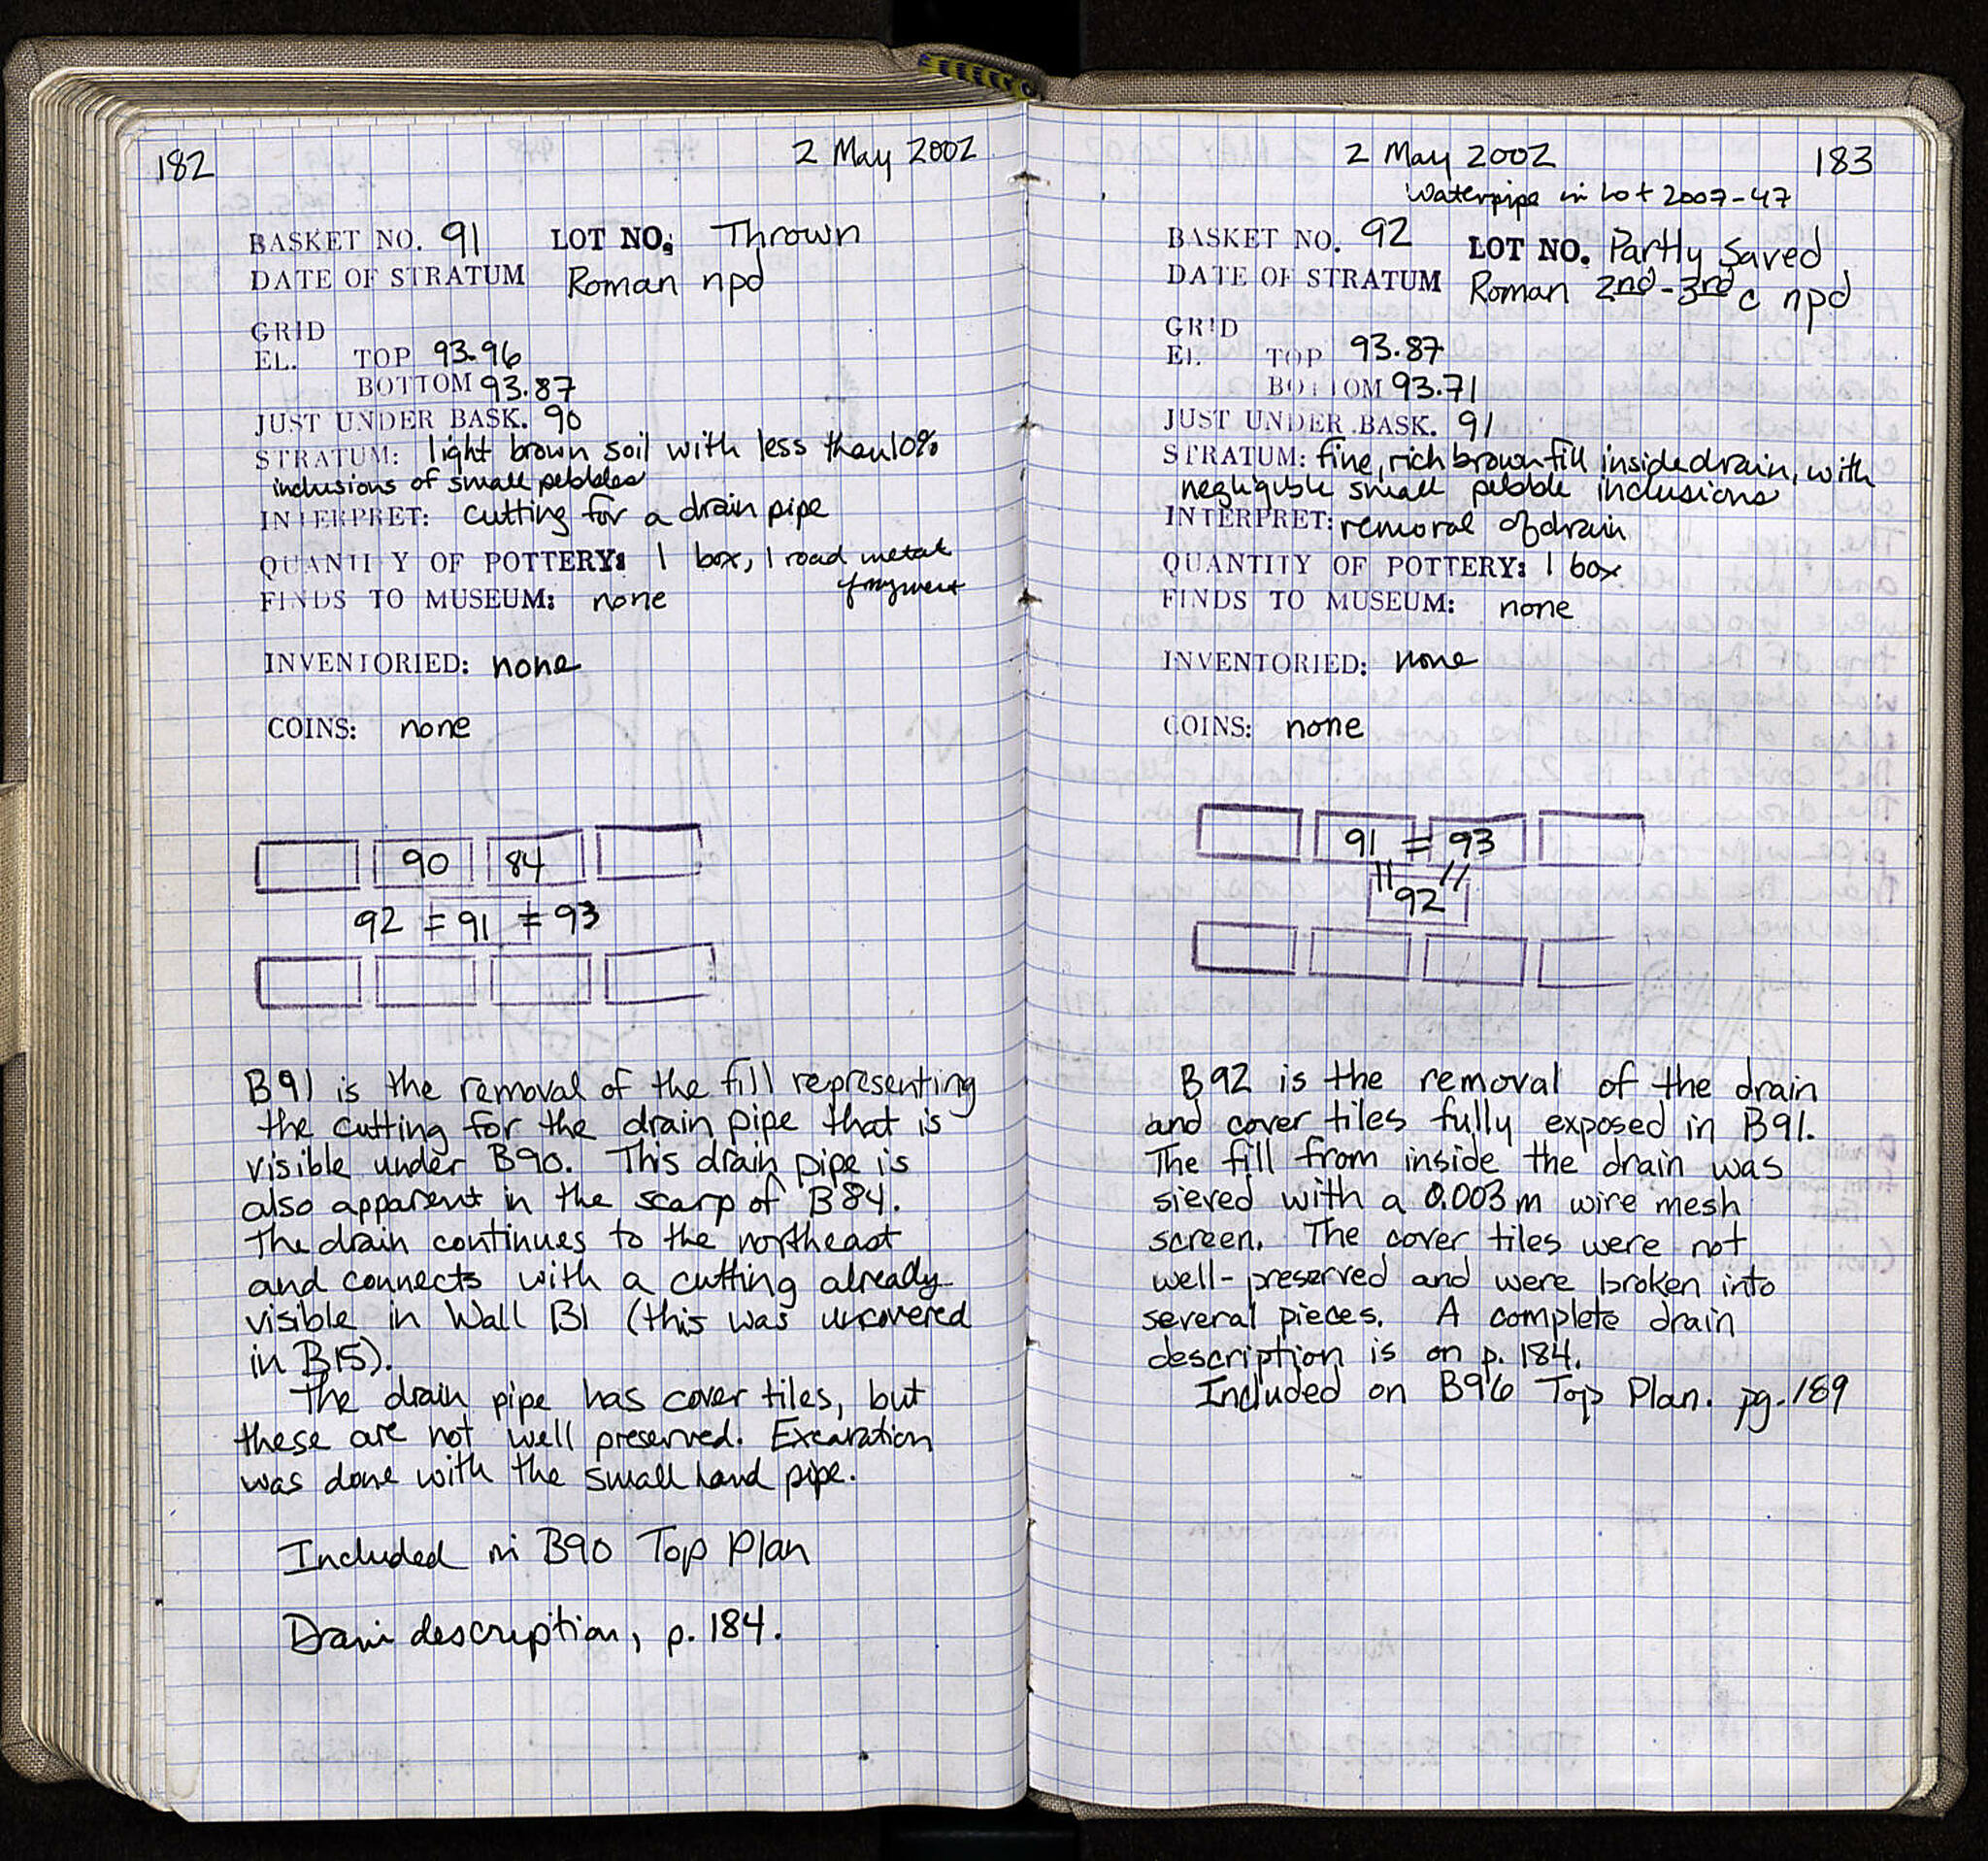 182
2 May 2002
BASKET NO. 91 LOT NO. Thrown
DATE OF STRATUM Roman npd
GRID
EL. TOP 93.96
BOTTOM 93.87
JUST UNDER BASK. 90
STRATUM: light brown soil with less than 10%
inclusions of small pebbles
INTERPRET: cutting for a drain pipe
QUANTITY OF POTTERY: 1 box, 1 road metal
fragment
FINDS TO MUSEUM: none
INVENTORIED: none
COINS: none
90 84
92 = 91 ≠ 93
B91 is the removal of the fill representing
the cutting for the drain pipe that is
visible under B90. This drain pipe is
also apparent in the scarp of B84.
The drain continues to the northeast
and connects with a cutting already
visible in Wall B1 (this was uncovered
in B15).
The drain pipe has cover tiles, but
these are not well preserved. Excavation
was done with the small hand pipe.
Included in B90 Top Plan
Drain description, p. 184.
2 May 2002
183
Waterpipe in Lot 2007-47
BASKET NO. 92 LOT NO. Partly Saved
DATE OF STRATUM Roman 2nd-3rd c npd
GRID
EL. TOP 93.87
BOTTOM 93.71
JUST UNDER BASK. 91
STRATUM: fine, rich brown fill inside drain, with
negligible small pebble inclusions
INTERPRET: removal of drain
QUANTITY OF POTTERY: 1 box
FINDS TO MUSEUM: none
INVENTORIED: none
COINS: none
91 ≠ 93
92
B92 is the removal of the drain
and cover tiles fully exposed in B91.
The fill from inside the drain was
sieved with a 0.003 m wire mesh
screen. The cover tiles were not
well-preserved and were broken into
several pieces. A complete drain
description is on p. 184.
Included on B96 Top Plan. pg. 189